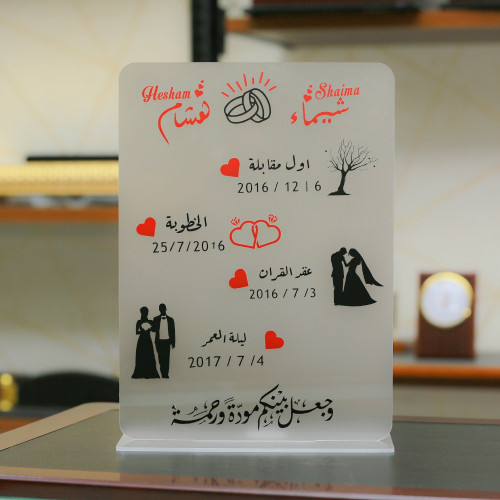 Hesham
هشام
Shaima
شيماء
اول مقابلة
2016 / 12 | 6
الخطوبة
25/7/2016
عقد القران
2016 / 7 /3
ليلة العمر
2017 / 7 /4
وجعل بينكم مودة ورحمة